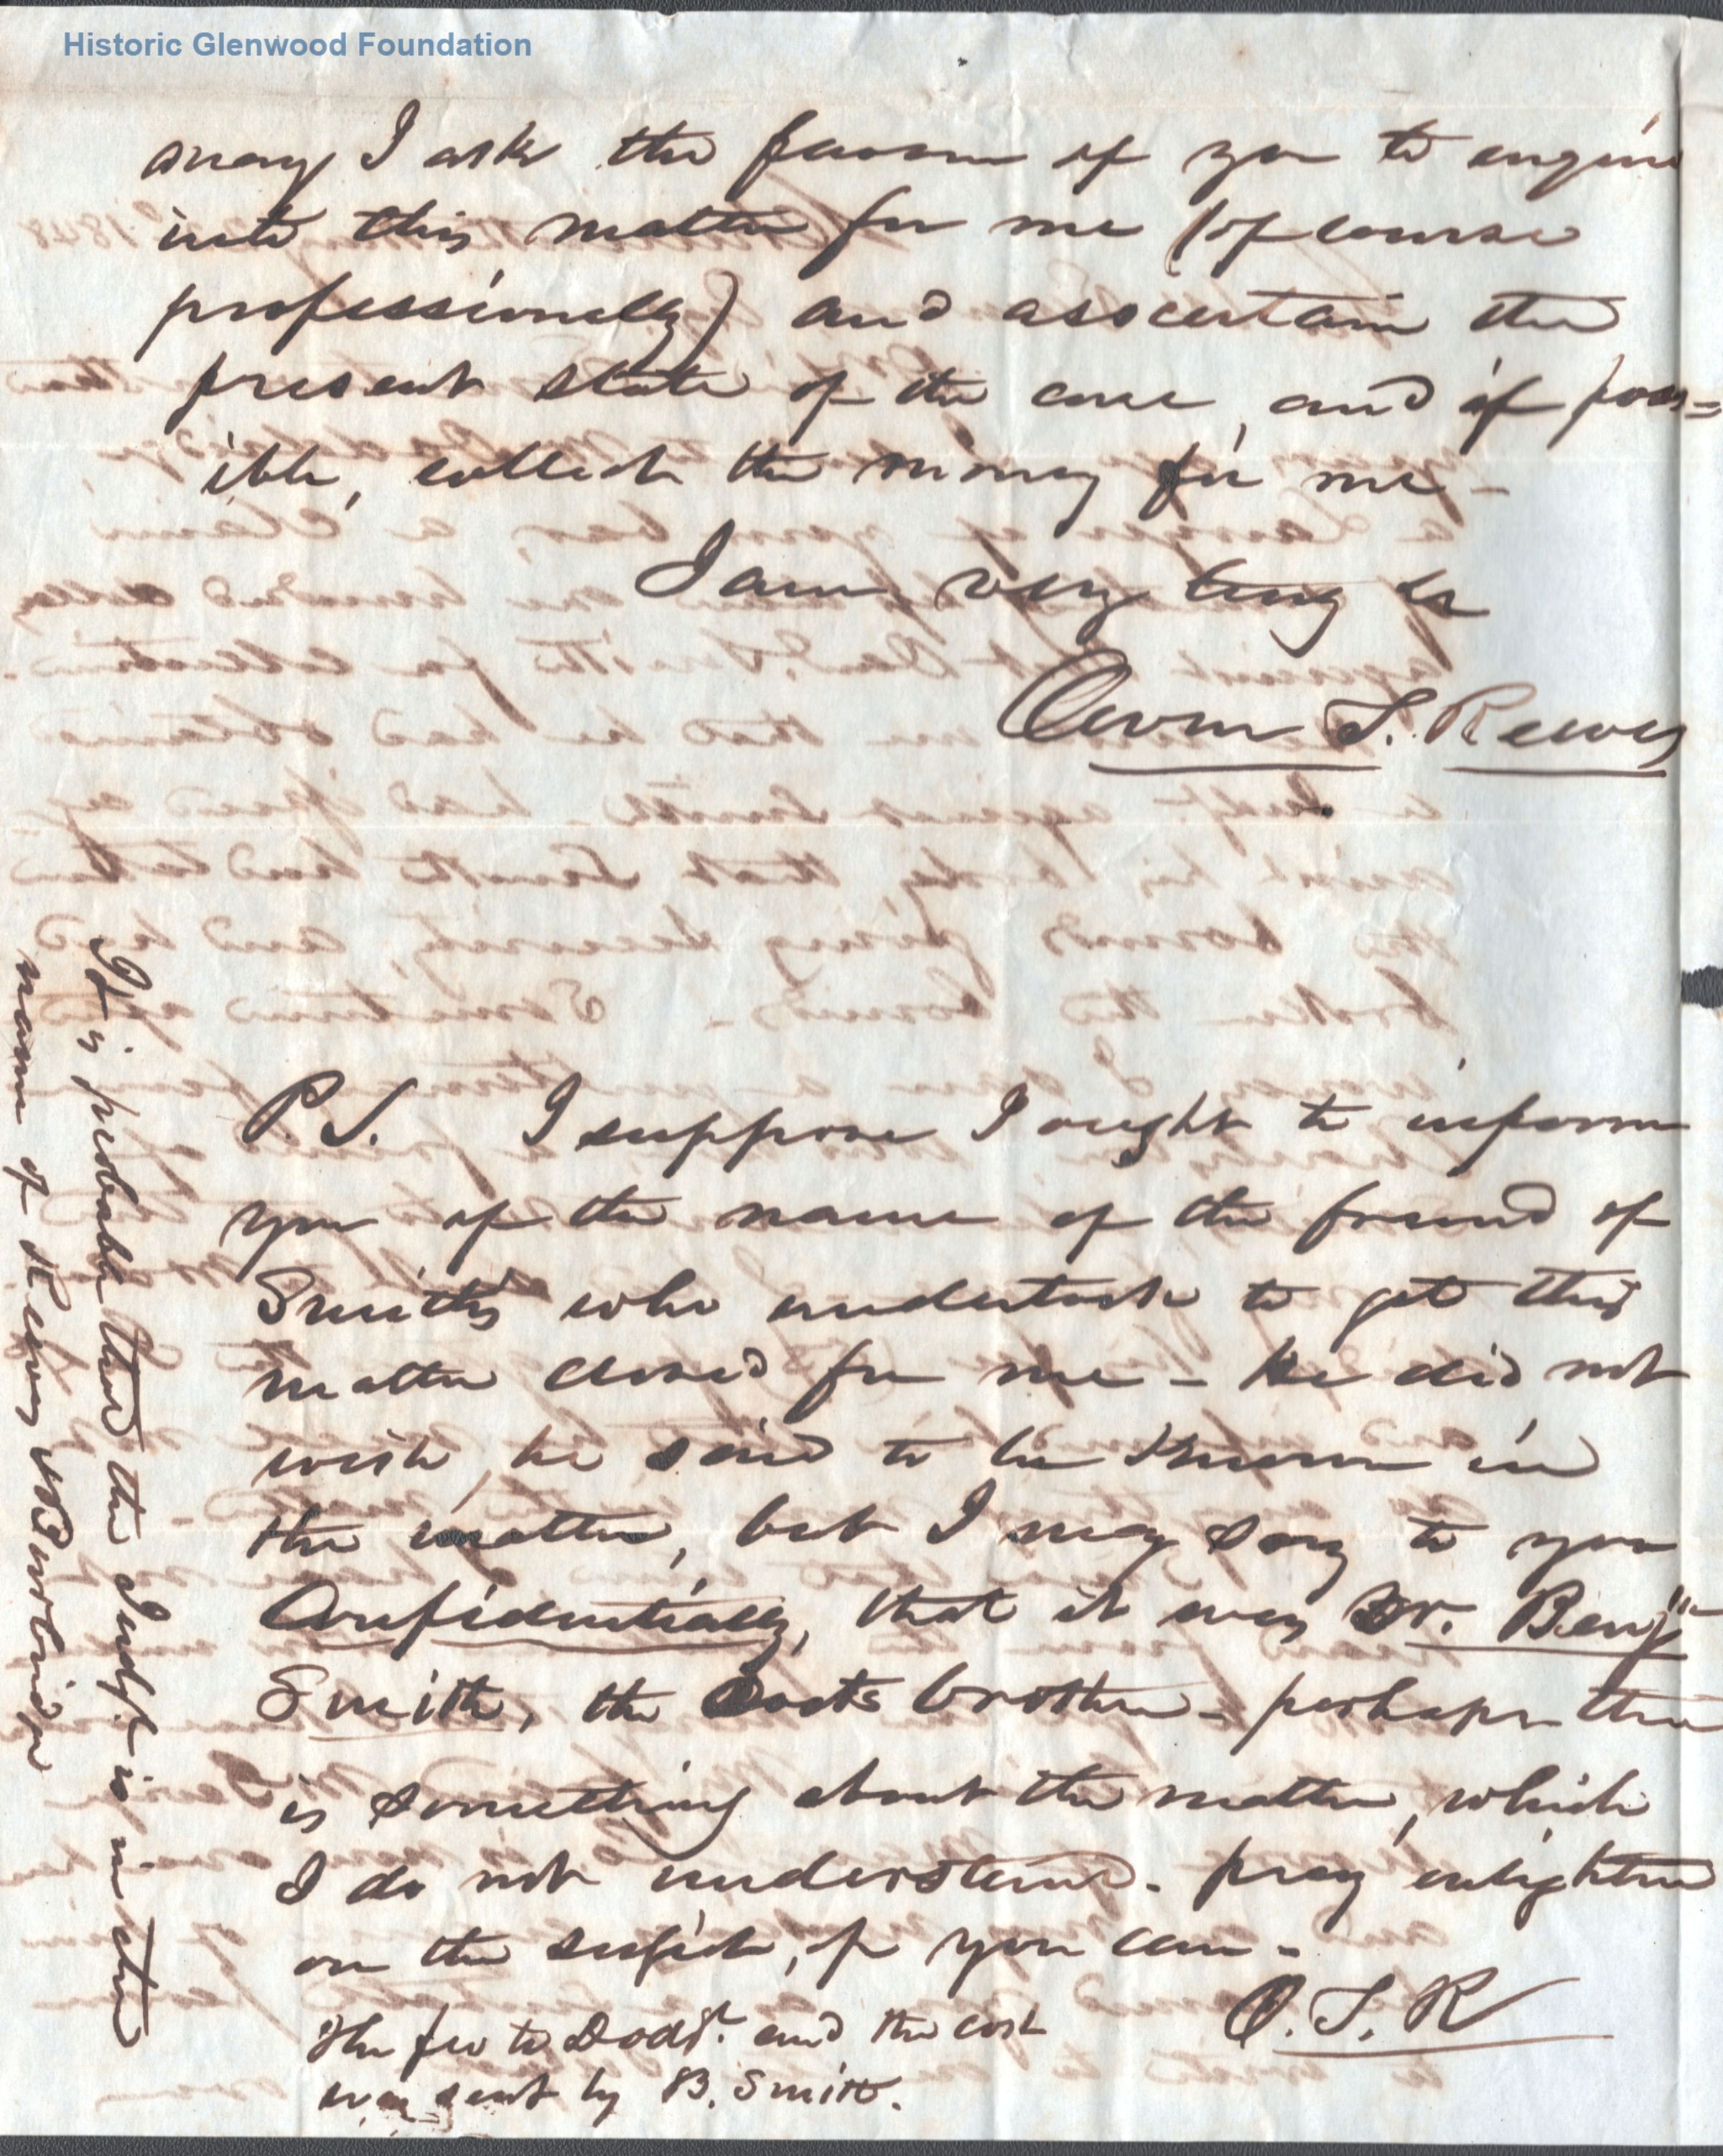 Historic Glenwood Foundation
may I ask the favour of you to enquire
into this matter for me (of course
professionally) and asscertain the
present state of the case, and if poss=
ible, collect the money for me -
I am very truly &c
S. Reeves
P.S. I suppose I ought to inform
you of the name of the friend of
Smith's who undertook to get this
matter closed for me - He did not
wish, he said to be known in
the matter, but I may say to you
Confidentially, that it was Dr. Benjn
Smith, the Docts brother - perhaps there
is something about the matter, which
I do not understand. pray enlighten
on the subject, if you can -
O. S. R
The fee to Dodr. and the cost
was sent by B. Smith.
It is probable that the Judgt. is in the
name of Reeves &